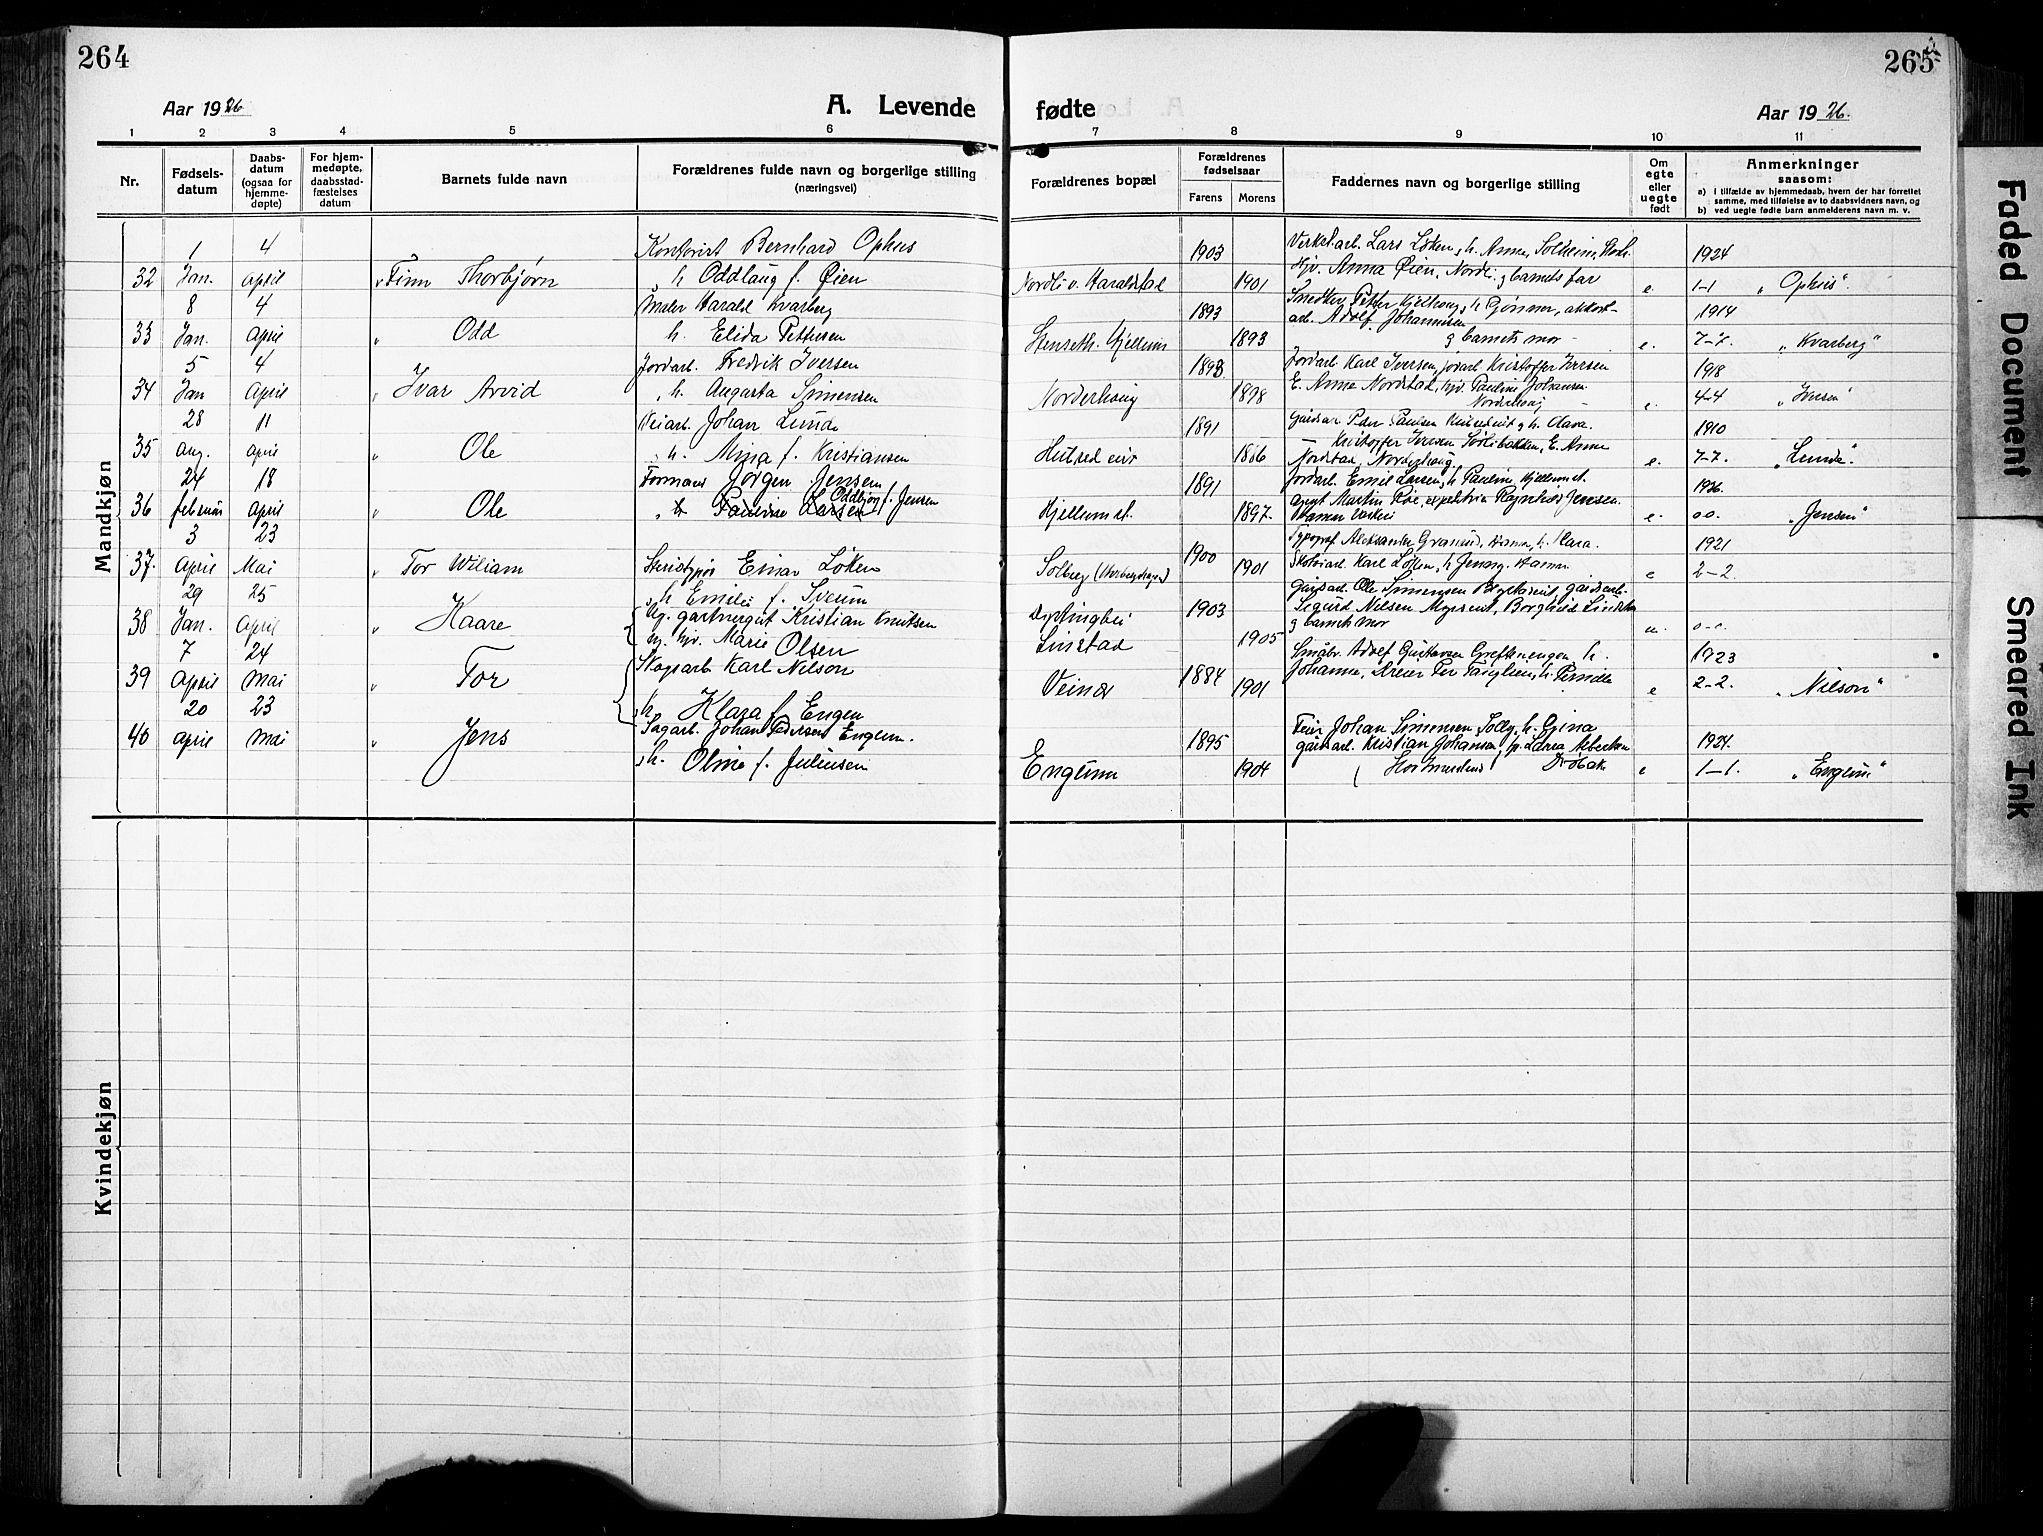 264
Aar 1926
A. Levende
1 2 3 4 5 6
Nr.
Fødsels-
datum
Daabs-
datum
(ogsaa for
hjemme-
døpte)
For hjem-
medøpte,
daabsstad-
fæstelses
datum
Barnets fulde navn
Forældrenes fulde navn og borgerlige stilling
(næringsvei)
Mandkjøn
1 4 Kontorist Bernhard Ophus
32 Jan. april Finn Thorbjørn h. Oddlaug f. Øien
8 4 Maler Harald Kvarberg
33 Jan. April Odd h. Elida Pettersen
5 4 Jordarb. Fredrik Iversen
34 Jan April Ivar Arvid h. Augusta Simensen
28 11 Veiarb. Johan Lunde
35 aug. april Ole h. Mina f. Kristiansen
24 18 Formand Jørgen Jensen
36 februar april Ole h. Pauline Larsen Oddbjørg f. Jensen
3 23
37. April Mai Tor Wiliam Einar Løken
29 25 h Emilie f. Sveum
38 Jan. April Kaare Ug. gartnergut Kristian Knutsen
7 24 ug. hjv. Marie Olsen
39 April Mai Tor Skogsarb Karl Nilson
20 23 h. Klara f. Engen
40 april Mai Jens Sagarb. Johan Pedersen Englum.
h. Oline f. Juliusen
Kvindekjøn
265
fødte
Aar 1926.
7 8 9 10 11
Forældrenes bopæl
Forældrenes
fødselsaar
Farens Morens
Faddernes navn og borgerlige stilling
Om
egte
eller
uegte
født
Anmerkninger
saasom:
a) i tilfælde av hjemmedaab, hvem der har forrettet
samme, med tilføielse av to daabsvidners navn, og
b) ved uegte fødte barn anmelderens navn m. v.
1903 Lars Løken, h. Anna, Solheim, 1924
Nordli v. Haraldstad 1901 Hjv. Anna Øien, Nordli, og barnets far e. 1-1 "Ophus"
1893 Snedker Petter Kjelhaug, h. 1914
Stenseth. Kjellum 1893 arb. Adolf Johannesen og barnets mor e. 7-7. "Kvarberg"
1893 Jordarb Karl Iversen, jordarb Kristoffer Iversen 1918
Norderhaug 1898 E. Anna Nordstad, hjv. Pauline Johansen Norderhaug e. 4-4 "Iversen"
1891 Peder Paulsen og h. Clara. 1910
1886 Kristoffer Iversen E. Anna
Nordstad, Norderhaug. e. 7-7. "Lunde".
1891 Jordarb. Emil Larsen, h Pauline, Kjellum st. 1926
Kjellum st. 1897. Martin Roe, Jensen.
e. 0 0. "Jensen"
1900 Typograf Aleksander Granlund, Hamar, h. Klara. 1921
Solberg 1901 Karl Løken, h Jenny. Hamar e 2-2.
1903 Ole Simensen
Linstad 1905 Sigurd Nilsen Myrseut, Borghild Lindstad
og barnets mor u. 0-0.
1884 Småbr. Adolf Gustavsen h. 1923
1901 Johanne, h. Pernille e 2-2. "Nilson"
1895 Johan Simensen Solby, h. Gina 1924.
Englum 1904 Kristian Johansen, Albertsen
Drøbak e 1-1. "Englum"
Faded Document
Smeared Ink